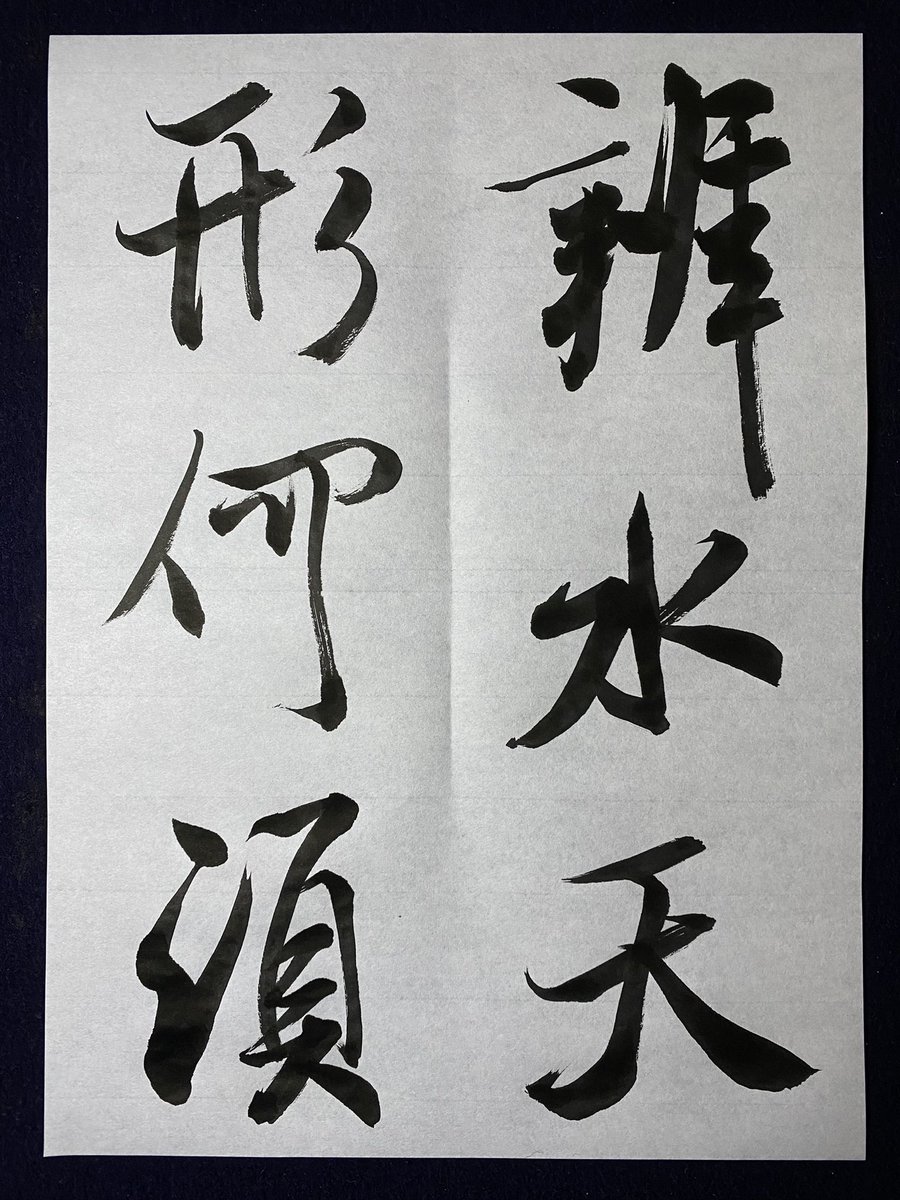 辨水天
形何須